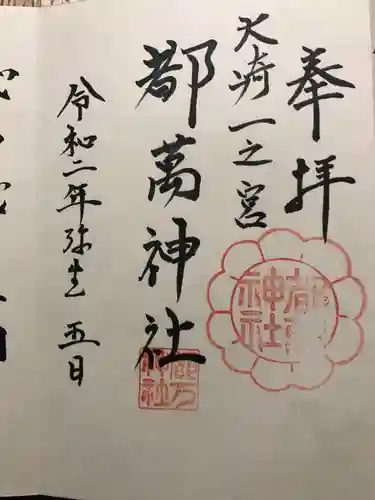 奉拝
大崎一之宮
都萬神社
令和二年弥生五日
都萬神社